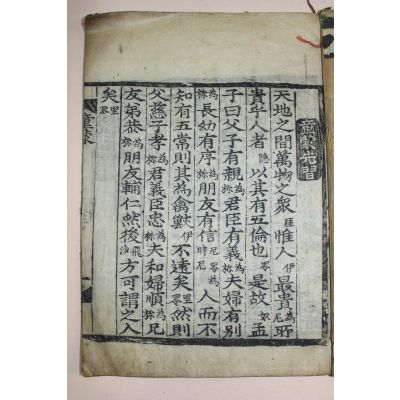 童蒙先習
天地之間萬物之衆厓惟人伊最貴為尼所
貴乎人者隱以其有五倫也罗是故奴孟
子曰父子有親君臣有義為旀夫婦有別
為旀長幼有序為旀朋友有信尼罗為時尼人而不
知有五常則其為禽獸伊不遠矣里罗然則
父慈子孝為旀君義臣忠為旀夫和婦順為旀兄
友弟恭為旀朋友輔仁然後飛沙方可謂之人
矣里罗
童蒙
一